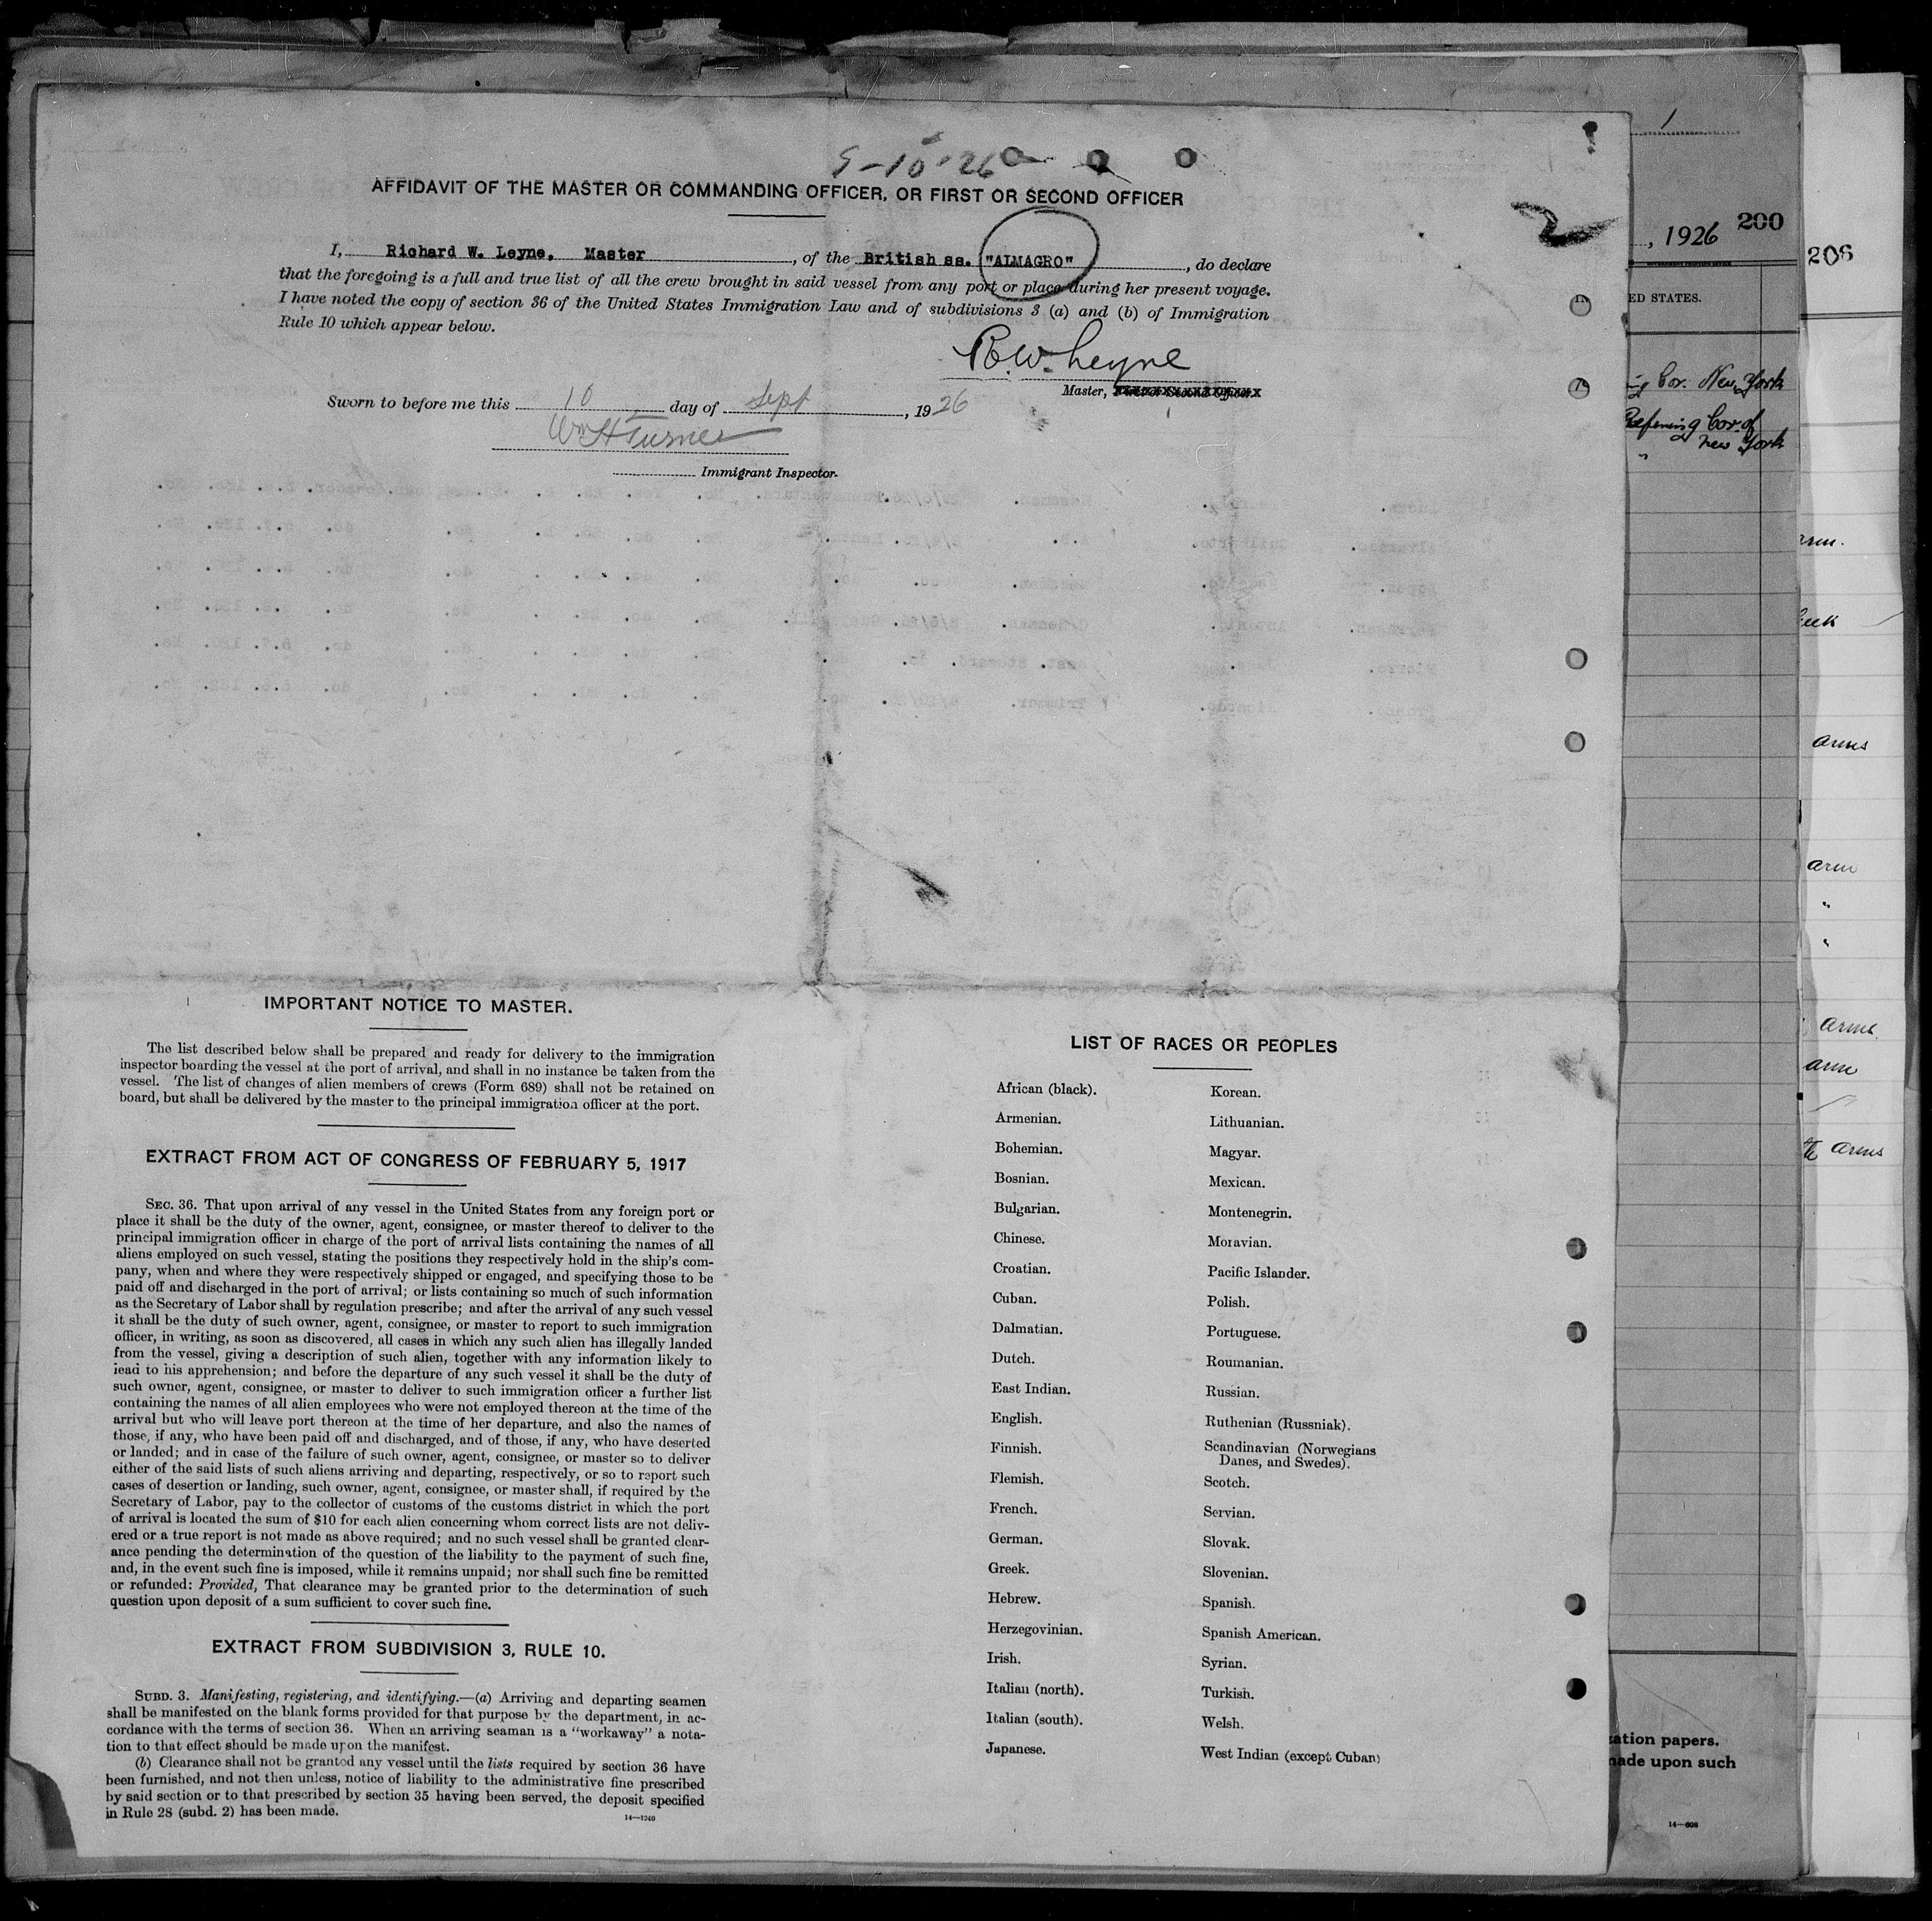 9-10-26
AFFIDAVIT OF THE MASTER OR COMMANDING OFFICER, OR FIRST OR SECOND OFFICER
I, Richard W. Leyne, Master, of the British ss. "ALMAGRO", do declare
that the foregoing is a full and true list of all the crew brought in said vessel from any port or place during her present voyage.
I have noted the copy of section 36 of the United States Immigration Law and of subdivisions 3 (a) and (b) of Immigration
Rule 10 which appear below.
R.W. Leyne
Master, First or Second Officer.
Sworn to before me this 10 day of Sept, 1926
Wm H Turner
Immigrant Inspector.
2
IMPORTANT NOTICE TO MASTER.
The list described below shall be prepared and ready for delivery to the immigration
inspector boarding the vessel at the port of arrival, and shall in no instance be taken from the
vessel. The list of changes of alien members of crews (Form 689) shall not be retained on
board, but shall be delivered by the master to the principal immigration officer at the port.
EXTRACT FROM ACT OF CONGRESS OF FEBRUARY 5, 1917
SEC. 36. That upon arrival of any vessel in the United States from any foreign port or
place it shall be the duty of the owner, agent, consignee, or master thereof to deliver to the
principal immigration officer in charge of the port of arrival lists containing the names of all
aliens employed on such vessel, stating the positions they respectively hold in the ship's com-
pany, when and where they were respectively shipped or engaged, and specifying those to be
paid off and discharged in the port of arrival; or lists containing so much of such information
as the Secretary of Labor shall by regulation prescribe; and after the arrival of any such vessel
it shall be the duty of such owner, agent, consignee, or master to report to such immigration
officer, in writing, as soon as discovered, all cases in which any such alien has illegally landed
from the vessel, giving a description of such alien, together with any information likely to
lead to his apprehension; and before the departure of any such vessel it shall be the duty of
such owner, agent, consignee, or master to deliver to such immigration officer a further list
containing the names of all alien employees who were not employed thereon at the time of the
arrival but who will leave port thereon at the time of her departure, and also the names of
those, if any, who have been paid off and discharged, and of those, if any, who have deserted
or landed; and in case of the failure of such owner, agent, consignee, or master so to deliver
either of the said lists of such aliens arriving and departing, respectively, or so to report such
cases of desertion or landing, such owner, agent, consignee, or master shall, if required by the
Secretary of Labor, pay to the collector of customs of the customs district in which the port
of arrival is located the sum of $10 for each alien concerning whom correct lists are not deliv-
ered or a true report is not made as above required; and no such vessel shall be granted clear-
ance pending the determination of the question of the liability to the payment of such fine,
and, in the event such fine is imposed, while it remains unpaid; nor shall such fine be remitted
or refunded: Provided, That clearance may be granted prior to the determination of such
question upon deposit of a sum sufficient to cover such fine.
EXTRACT FROM SUBDIVISION 3, RULE 10.
SUBD. 3. Manifesting, registering, and identifying.—(a) Arriving and departing seamen
shall be manifested on the blank forms provided for that purpose by the department, in ac-
cordance with the terms of section 36. When an arriving seaman is a "workaway" a nota-
tion to that effect should be made upon the manifest.
(b) Clearance shall not be granted any vessel until the lists required by section 36 have
been furnished, and not then unless, notice of liability to the administrative fine prescribed
by said section or to that prescribed by section 35 having been served, the deposit specified
in Rule 28 (subd. 2) has been made.
14—1240
LIST OF RACES OR PEOPLES
African (black).
Armenian.
Bohemian.
Bosnian.
Bulgarian.
Chinese.
Croatian.
Cuban.
Dalmatian.
Dutch.
East Indian.
English.
Finnish.
Flemish.
French.
German.
Greek.
Hebrew.
Herzegovinian.
Irish.
Italian (north).
Italian (south).
Japanese.
Korean.
Lithuanian.
Magyar.
Mexican.
Montenegrin.
Moravian.
Pacific Islander.
Polish.
Portuguese.
Roumanian.
Russian.
Ruthenian (Russniak).
Scandinavian (Norwegians
Danes, and Swedes).
Scotch.
Servian.
Slovak.
Slovenian.
Spanish.
Spanish American.
Syrian.
Turkish.
Welsh.
West Indian (except Cuban)
1
, 1926 200
ED STATES.
Cor. New York
Refining Cor. of
New York
"
ation papers.
made upon such
14—608
206
arm.
eek
arms
arm
"
"
arms.
arm
arms